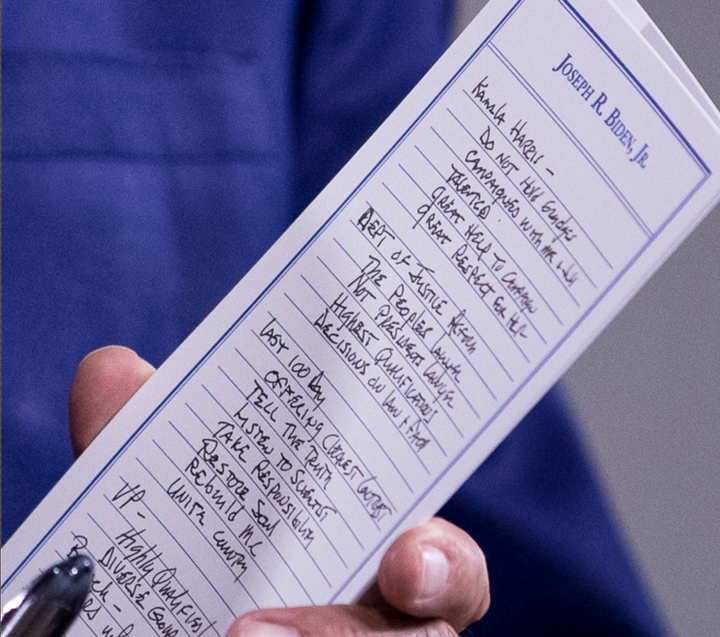 JOSEPH R. BIDEN, JR.
KAMALA HARRIS -
DO NOT HOLD GRUDGES
CAMPAIGNED WITH ME & JILL
TALENTED.
GREAT HELP TO CAMPAIGN
GREAT RESPECT FOR HER
DEPT OF JUSTICE
THE PEOPLES LAWYER
NOT PRESIDENTS LAWYER
HIGHEST QUALIFICATIONS
DECISIONS ON LAW & FACT
LAST 100 DAYS
OFFERING CLEAREST CONTRAST
TELL THE TRUTH
LISTEN TO SCIENTIST
TAKE RESPONSIBILITY
RESTORE SOUL
REBUILD MC
UNITE COUNTRY
VP -
HIGHLY QUALIFIED
DIVERSE GROUP